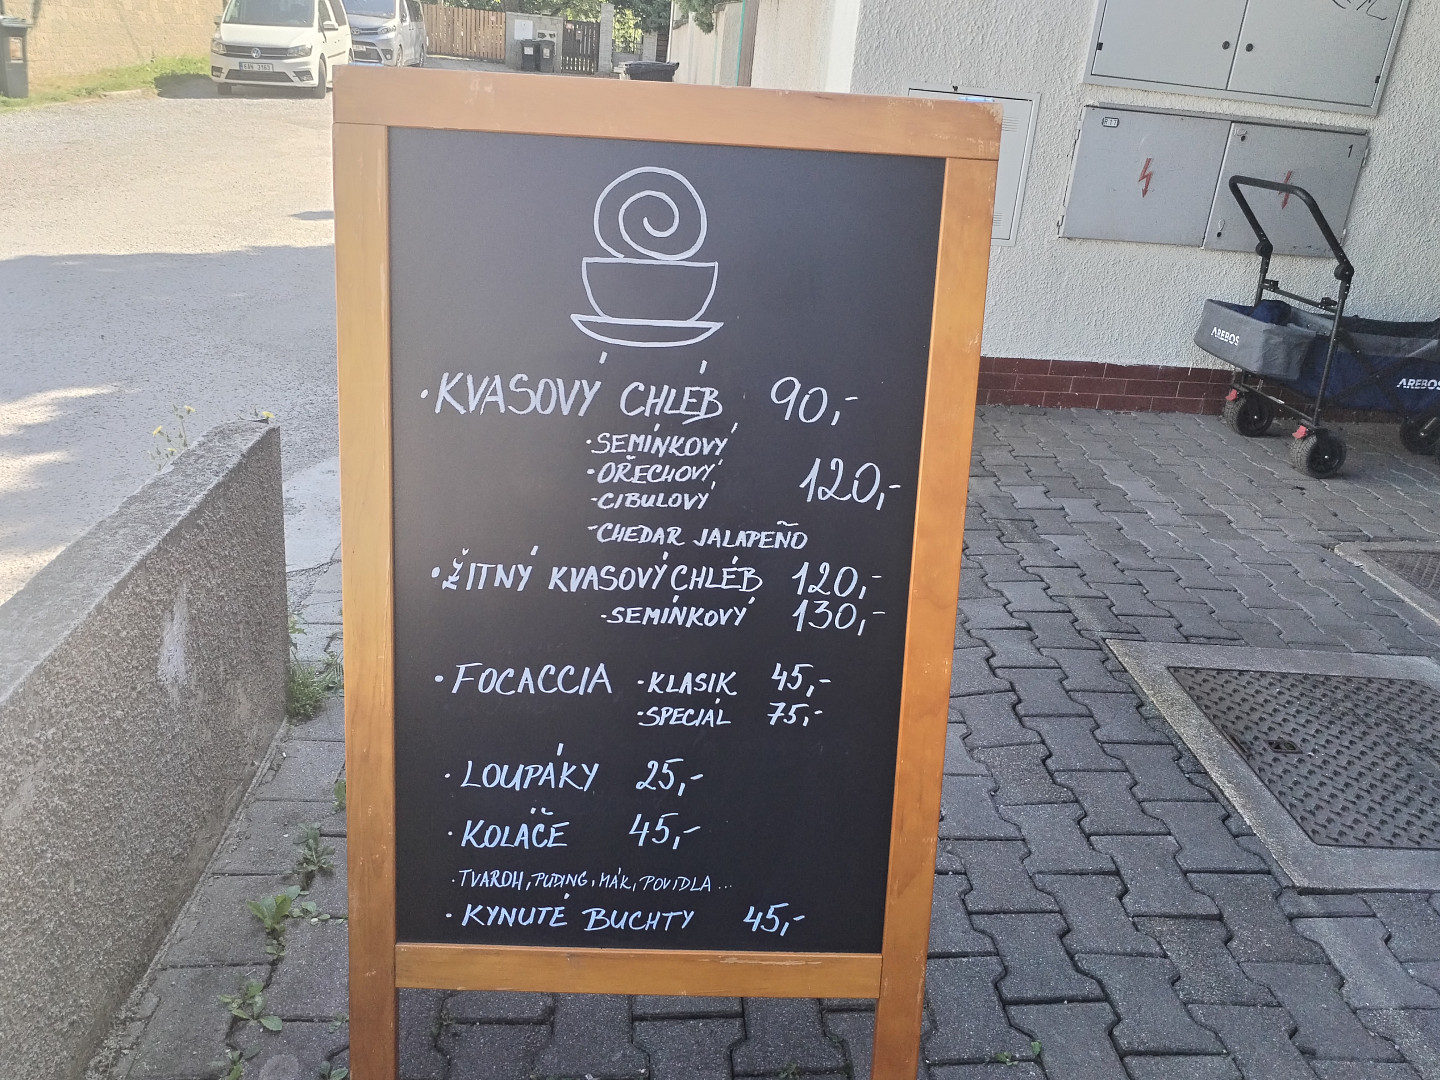 ·KVASOVÝ CHLÉB 90,-
·SEMÍNKOVÝ
·OŘECHOVÝ
-CIBULOVÝ 120,-
-CHEDAR JALAPEÑO
·ŽITNÝ KVASOVÝ CHLÉB 120,-
-SEMÍNKOVÝ 130,-
·FOCACCIA ·KLASIK 45,-
·SPECIÁL 75,-
·LOUPÁKY 25,-
·KOLÁČE 45,-
·TVAROH, PUDING, MÁK, POVIDLA...
·KYNUTÉ BUCHTY 45,-
AREBOS
AREBOS
1